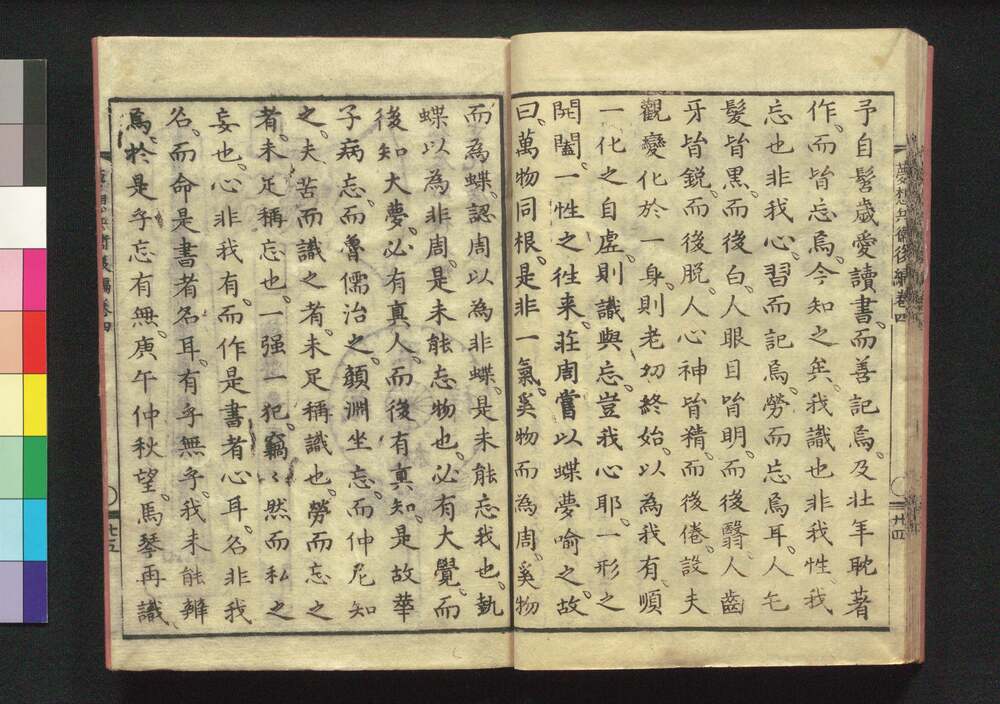 夢想兵衛後編巻四
廿四
予自髫歳愛讀書。而善記焉。及壮年耽著
作。而皆忘焉。今知之矣。我識也非我性。我
忘也非我心。習而記焉。勞而忘焉耳。人毛
髮皆黒。而後白。人眼目皆明。而後翳。人齒
牙皆鋭。而後脱。人心神皆精。而後倦。設夫
觀變化於一身。則老幼終始。以為我有。順
一化之自虚。則識與忘。豈我心耶。一形之
開闔。一性之往来。莊周嘗以蝶夢喻之。故
曰。萬物同根。是非一氣。奚物而為周。奚物
而為蝶。認周以為非蝶。是未能忘我也。執
蝶以為非周。是未能忘物也。必有大覺。而
後知大夢。必有真人。而後有真知。是故華
子病忘。而魯儒治之。顏淵坐忘。而仲尼知
之。夫苦而識之者。未足稱識也。勞而忘之
者。未足稱忘也。一强一犯。竊〻然而私之
妄也。心非我有。而作是書者心耳。名非我
名。而命是書者名耳。有乎無乎。我未能辨
焉。於是乎忘有無。庚午仲秋望。馬琴再識
廿五